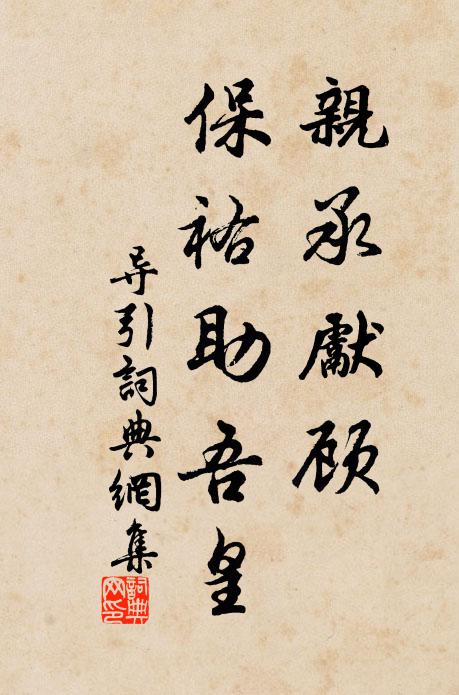 親承獻顾
保祐助吾皇
导引詞典網集
詞典网印